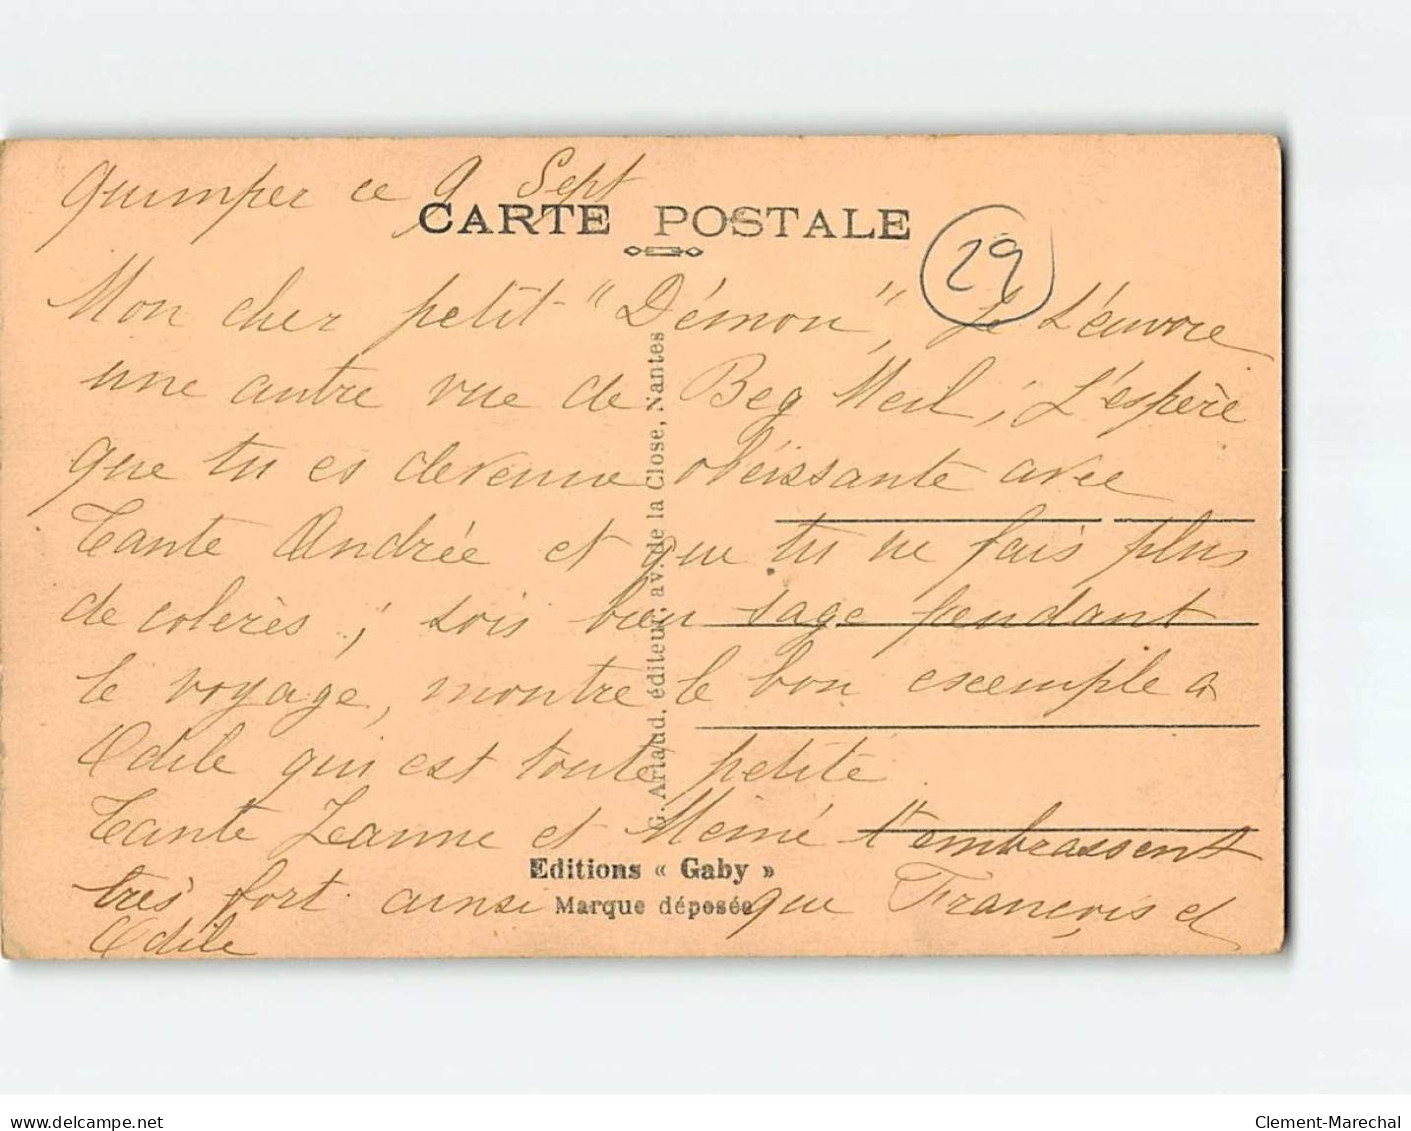 Quimper ce 9 Sept
CARTE POSTALE
29
Mon cher petit "Démon", Je t'envoie
une autre vue de Beg Meil, J'espère
que tu es devenue obéissante avec
Tante Andrée et que tu ne fais plus
de colerès ; sois bien sage pendant
le voyage, montre le bon exemple a
Odile qui est toute petite
Tante Jeanne et Mémé t'embrassent
très fort ainsi que François et
Odile
G. Artaud, éditeur, av. de la Close, Nantes
Editions « Gaby »
Marque déposée
www.delcampe.net
Clement-Marechal